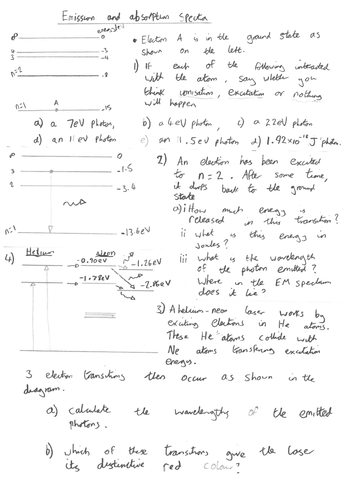 Emission and absorption spectra
energy/eV
∞ 0
4 -3
3 -4
n=2 -8
n=1 A -15
• Electron A is in the ground state as
shown on the left.
1) If each of the following interacted
with the atom, say whether you
think ionisation, excitation or nothing
will happen
a) a 7eV photon, b) a 6eV photon, c) a 22eV photon
d) an 11eV photon e) an 11.5eV photon d) 1.92x10⁻¹⁸ J photon.
∞ 0
3 -1.5
2 -3.4
n=1 -13.6eV
2) An electron has been excited
to n=2. After some time,
it drops back to the ground
state
a) i How much energy is
released in this transition?
ii what is this energy in
joules?
iii What is the wavelength
of the photon emitted?
Where in the EM spectrum
does it lie?
4) Helium Neon
-0.90eV
-1.26eV
-1.78eV
-2.86eV
3) A helium-neon laser works by
exciting electrons in He atoms.
These He atoms collide with
Ne atoms transferring excitation
energy.
3 electron transitions then occur as shown in the
diagram.
a) calculate the wavelengths of the emitted
photons.
b) which of these transitions give the laser
its distinctive red colour?